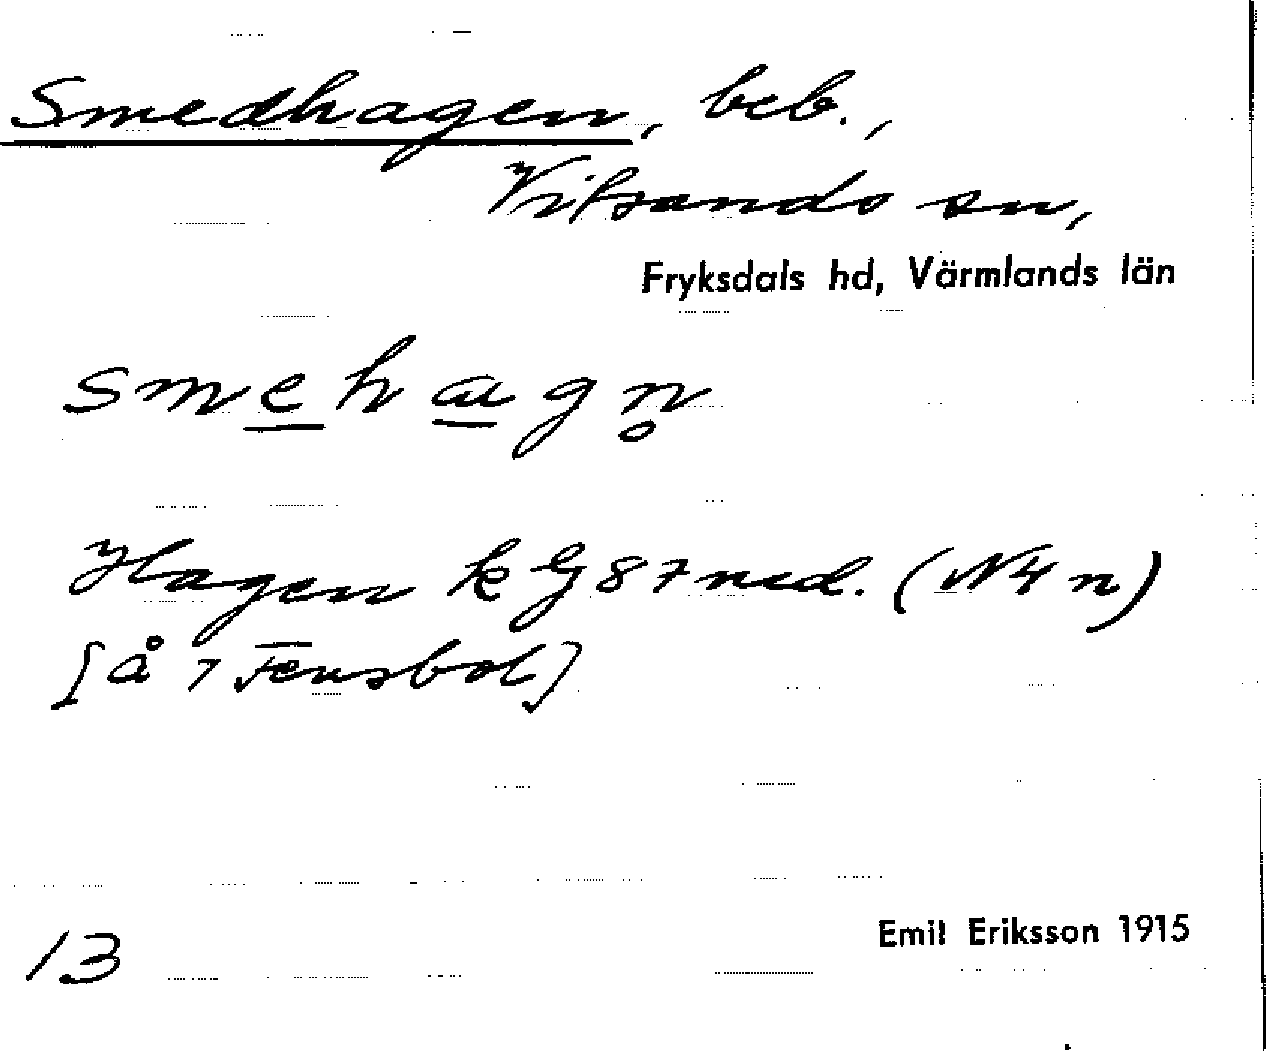 Smedhagen, beb.,
Vitsands sn,
Fryksdals hd, Värmlands län
smehagn̥
Hagen k G 87 ned. (N4n)
[å 7 Fensbol]
13
Emil Eriksson 1915